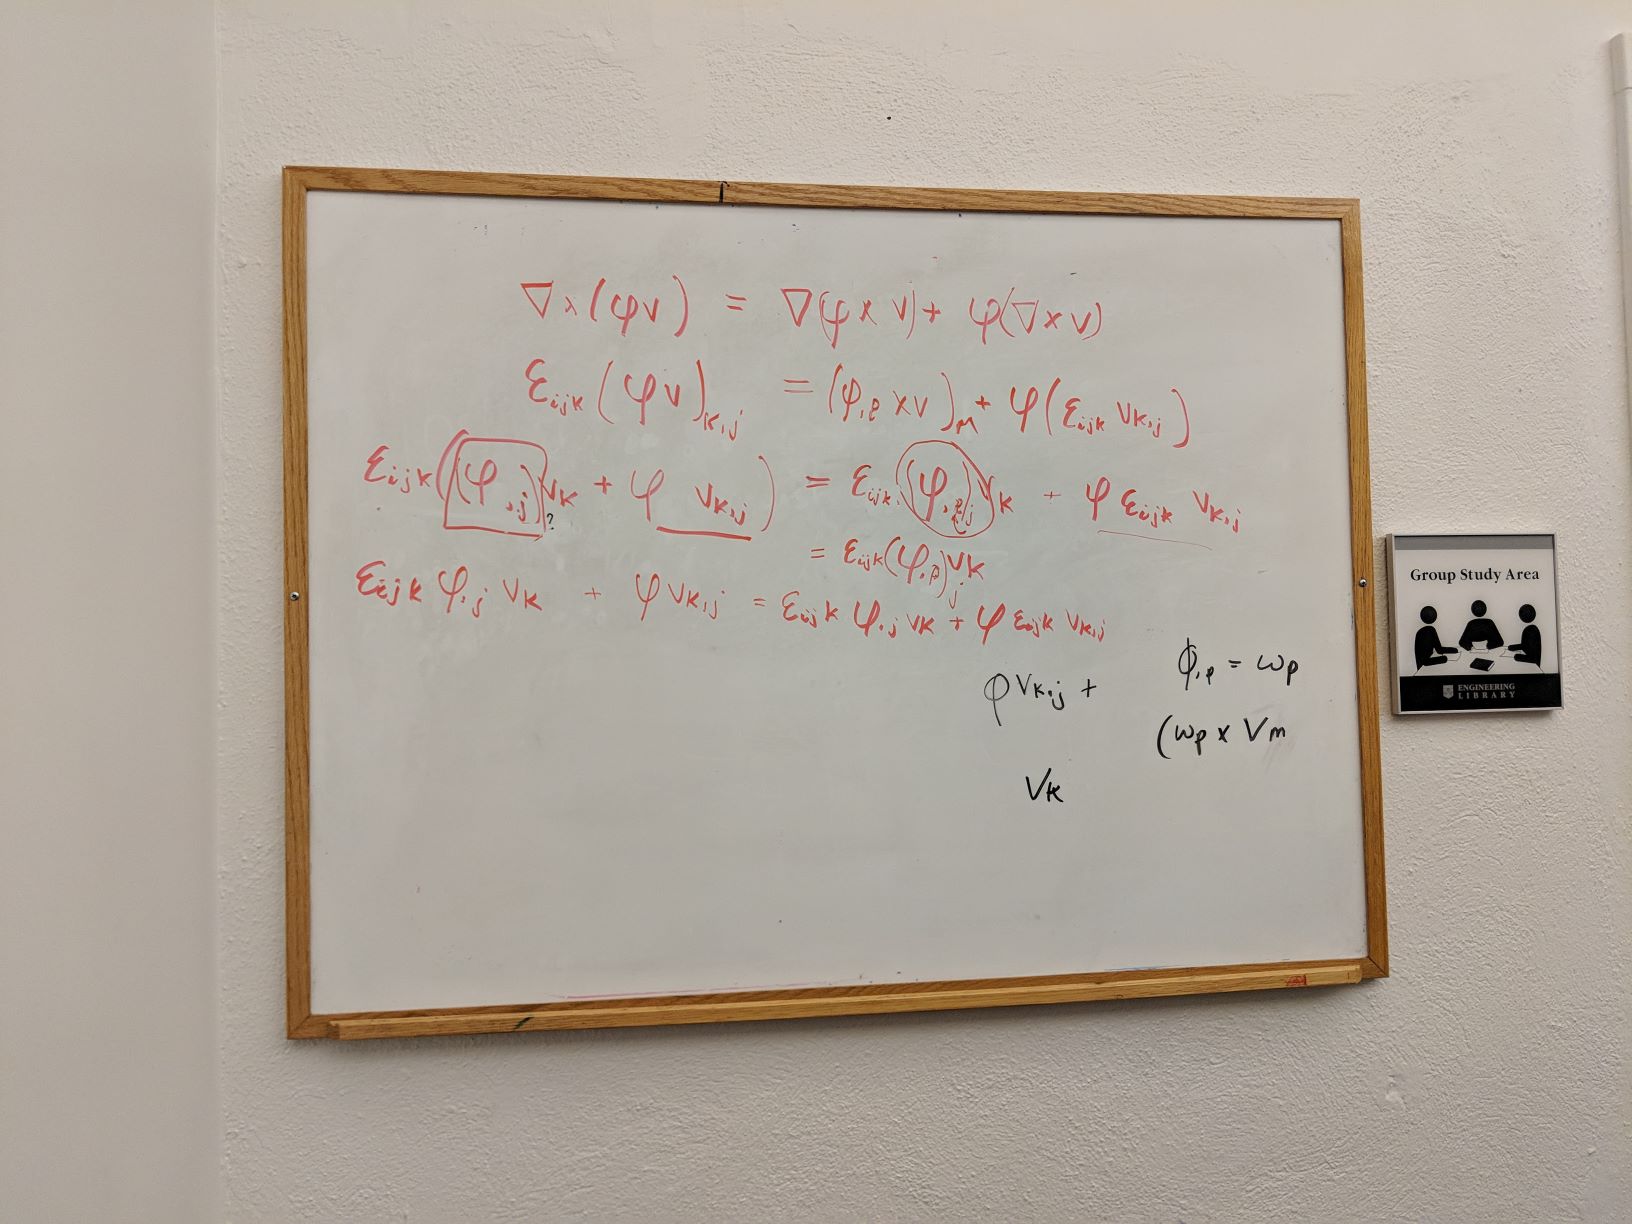 ∇×(φv) = ∇(φ × v) + φ(∇×v)
εijk (φv)k,j = (φ,p × v)m + φ(εijk vk,j)
εijk((φ,j)vk + φ vk,j) = εijk((φ,p)j vk + φ εijk vk,j
?
= εijk(φ,p)j vk
εijk φ,j vk + φ vk,j = εijk φ,j vk + φ εijk vk,j
φ vk,j +
ϕ,p = ωp
(ωp × Vm
Vk
Group Study Area
ENGINEERING
LIBRARY